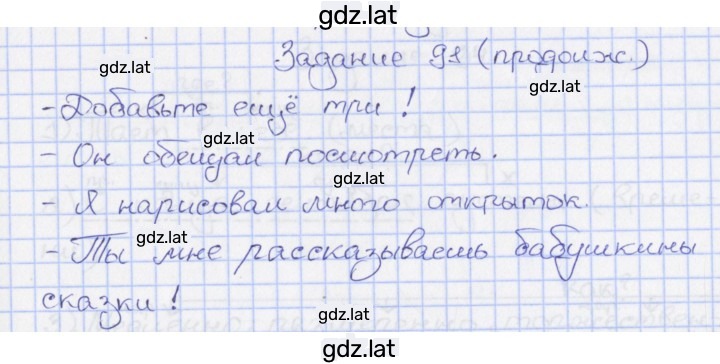 gdz.lat
Задание 91 (продолж.)
gdz.lat
gdz.lat
- Добавьте ещё три!
gdz.lat
- Он обещал посмотреть.
gdz.lat
- Я нарисовал много открыток.
gdz.lat
- Ты мне рассказываешь бабушкины
сказки!
gdz.lat
gdz.lat